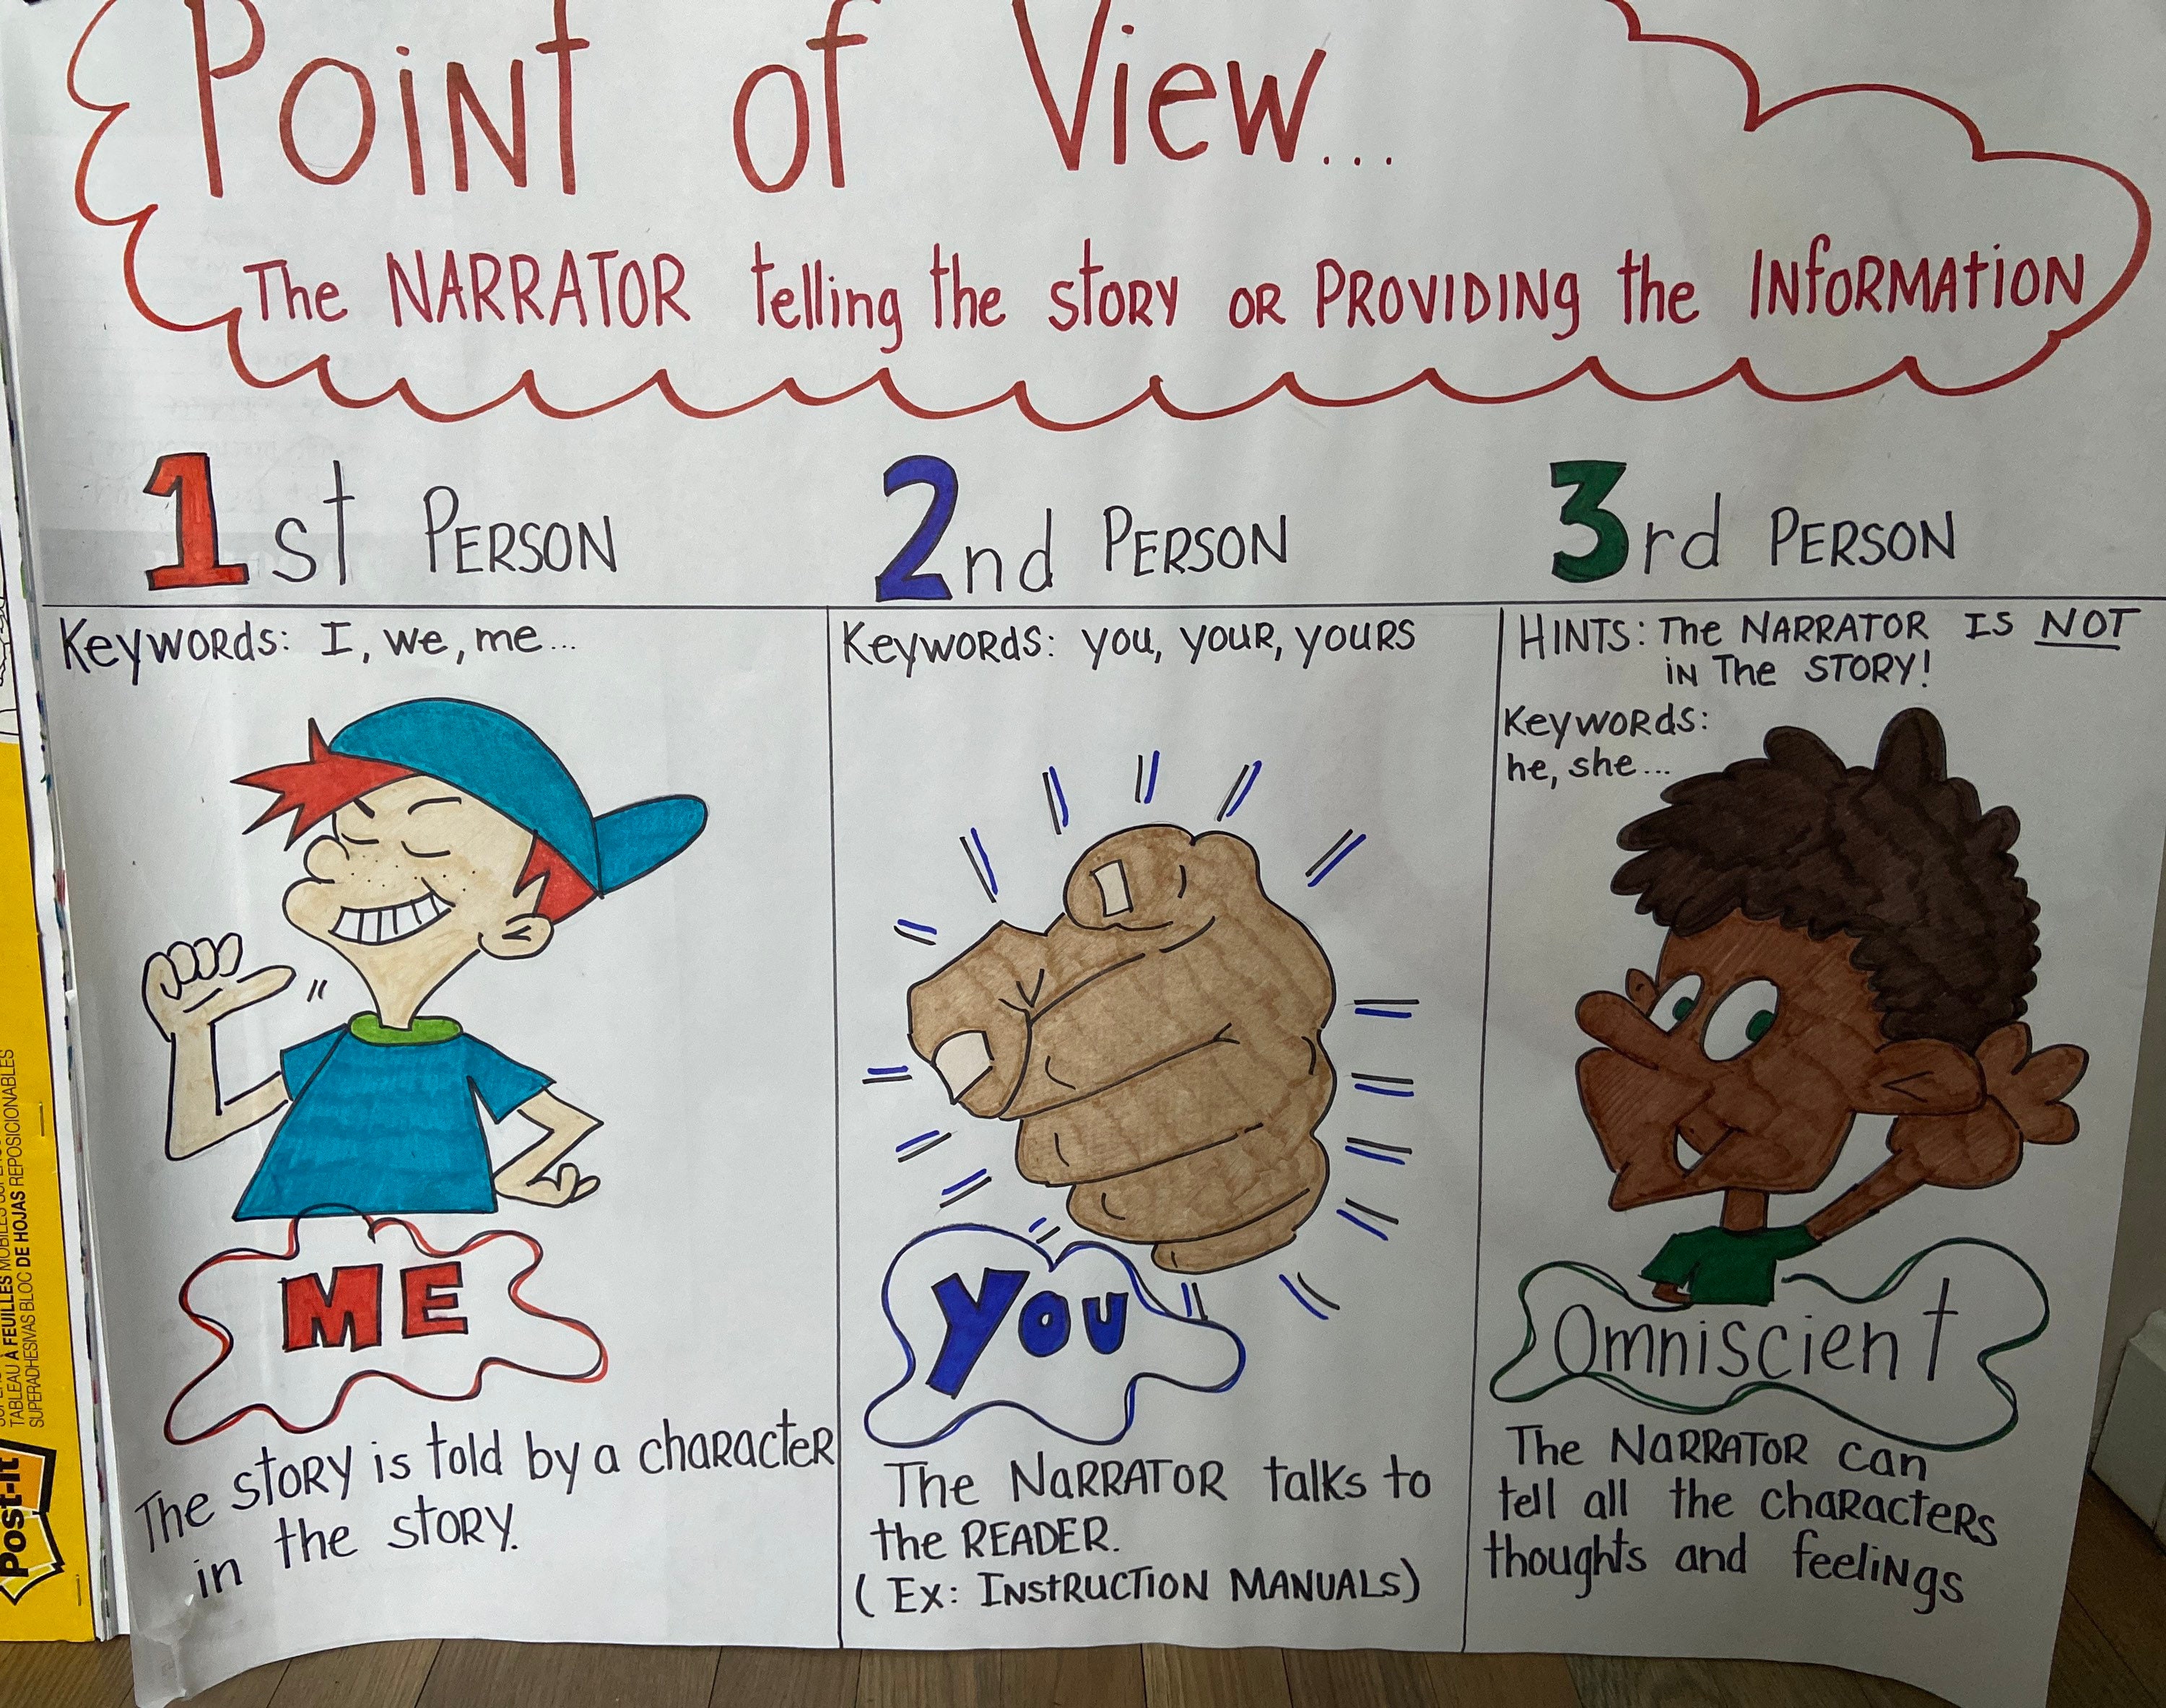 Point of View...
The NARRATOR telling the story or PROVIDING the INFORMATION
1st PERSON
2nd PERSON
3rd PERSON
Keywords: I, we, me...
ME
The story is told by a character
in the story.
Keywords: you, your, yours
YOU
The NARRATOR talks to
the READER.
(Ex: INSTRUCTION MANUALS)
HINTS: The NARRATOR IS NOT
in The STORY!
Keywords:
he, she...
Omniscient
The NARRATOR can
tell all the characters
thoughts and feelings
TABLEAU À FEUILLES MOBILES
SUPERADHESIVAS BLOC DE HOJAS REPOSICIONABLES
Post-it